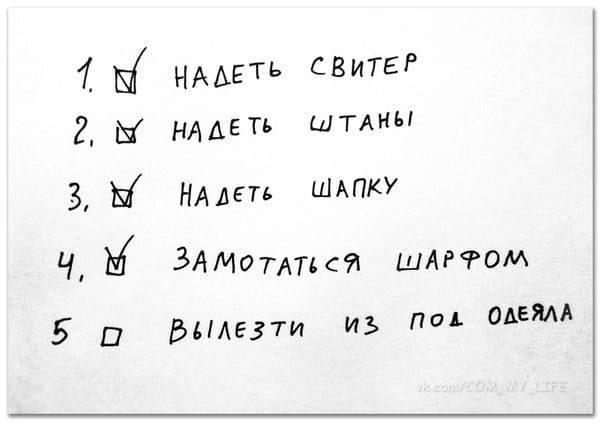 1. НАДЕТЬ СВИТЕР
2. НАДЕТЬ ШТАНЫ
3. НАДЕТЬ ШАПКУ
4. ЗАМОТАТЬСЯ ШАРФОМ
5 ВЫЛЕЗТИ ИЗ ПОД ОДЕЯЛА
vk.com/COM_MY_LIFE